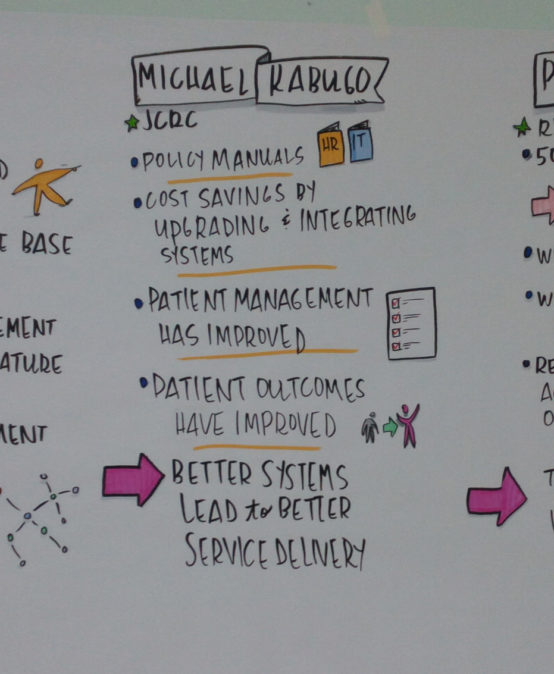 MICHAEL KABUGO
JCRC
POLICY MANUALS
HR IT
COST SAVINGS BY
UPGRADING & INTEGRATING
SYSTEMS
PATIENT MANAGEMENT
HAS IMPROVED
PATIENT OUTCOMES
HAVE IMPROVED
BETTER SYSTEMS
LEAD to BETTER
SERVICE DELIVERY
BASE